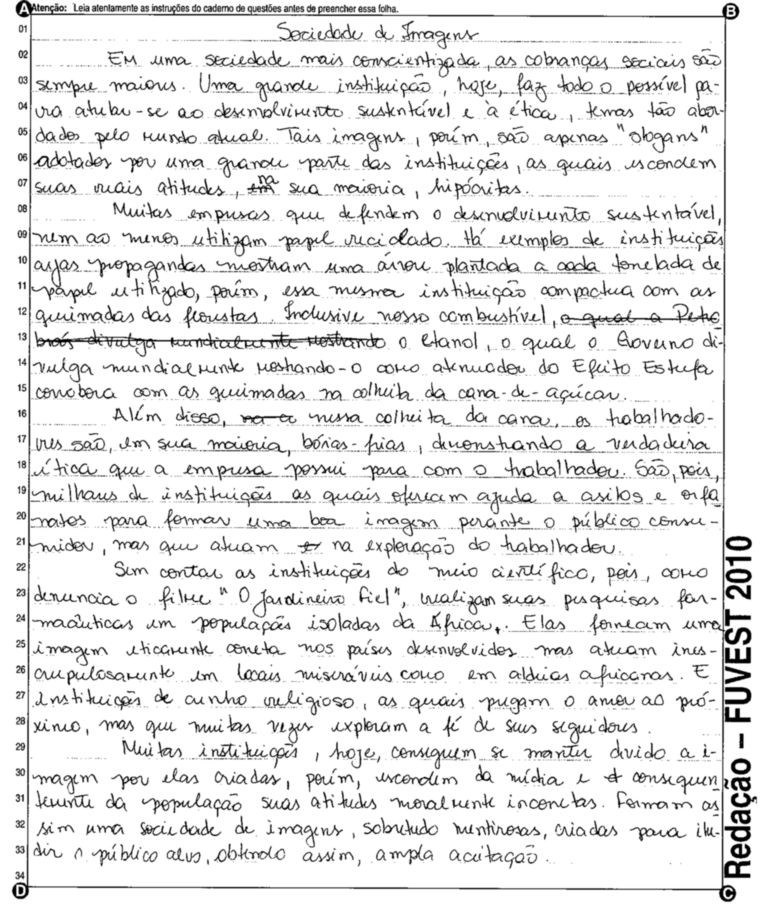 A Atenção: Leia atentamente as instruções do caderno de questões antes de preencher essa folha. B
01 Sociedade de Imagens
02 Em uma sociedade mais conscientizada, as cobranças sociais são
03 sempre maiores. Uma grande instituição, hoje, faz todo o possível pa-
04 ra atrelar-se ao desenvolvimento sustentável e à ética, temas tão abor-
05 dados pelo mundo atual. Tais imagens, porém, são apenas "slogans"
06 adotados por uma grande parte das instituições, as quais escondem
07 suas reais atitudes, em na sua maioria, hipócritas.
08 Muitas empresas que defendem o desenvolvimento sustentável,
09 nem ao menos utilizam papel reciclado. Há exemplos de instituições
10 cujas propagandas mostram uma árvore plantada a cada tonelada de
11 papel utilizado, porém, essa mesma instituição compactua com as
12 queimadas das florestas. Inclusive nosso combustível, o qual a Petro
13 brás divulga mundialmente mostrando o etanol, o qual o Governo di-
14 vulga mundialmente mostrando-o como atenuador do Efeito Estufa
15 corrobora com as queimadas na colheita da cana-de-açúcar.
16 Além disso, nessa colheita da cana, os trabalhado-
17 res são, em sua maioria, bóias-frias, demonstrando a verdadeira
18 ética que a empresa possui para com o trabalhador. São, pois,
19 milhares de instituições as quais oferecem ajuda a asilos e orfa
20 natos para formar uma boa imagem perante o público consu-
21 midor, mas que atuam na exploração do trabalhador.
22 Sem contar as instituições do meio científico, pois, como
23 denuncia o filme "O Jardineiro Fiel", realizam suas pesquisas far-
24 macêuticas em populações isoladas da África. Elas fornecem uma
25 imagem eticamente correta nos países desenvolvidos mas atuam ines-
26 crupulosamente em locais miseráveis como em aldeias africanas. E
27 instituições de cunho religioso, as quais pregam o amor ao pró-
28 ximo, mas que muitas vezes exploram a fé de seus seguidores.
29 Muitas instituições, hoje, conseguem se manter devido a i-
30 magem por elas criadas, porém, escondem da mídia e consequen
31 temente da população suas atitudes moralmente incorretas. Formam as
32 sim uma sociedade de imagens, sobretudo mentirosas, criadas para ilu-
33 dir o público alvo, obtendo assim, ampla aceitação.
34
D C
Redação – FUVEST 2010